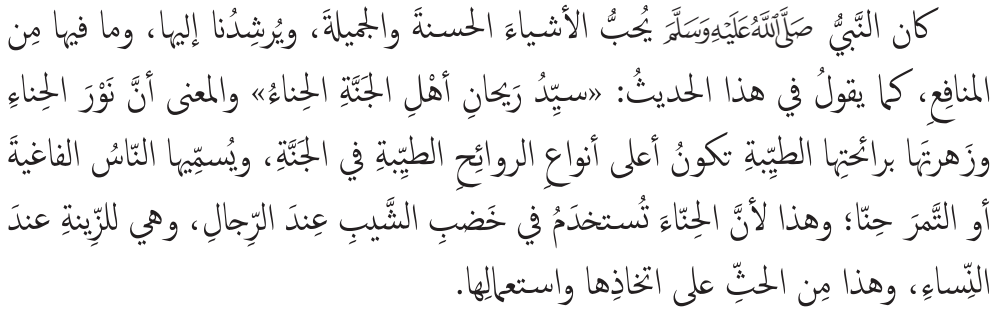 كان النَّبيُّ صَلَّى اللَّهُ عَلَيْهِ وَسَلَّمَ يُحبُّ الأشياءَ الحسنةَ والجميلةَ، ويُرشِدُنا إليها، وما فيها مِن
المنافِعِ، كما يقولُ في هذا الحديثُ: «سيِّدُ رَيحانِ أهْلِ الجَنَّةِ الحِناءُ» والمعنى أنَّ نَوْرَ الحِناءِ
وزَهرتَها برائحتِها الطيِّبةِ تكونُ أعلى أنواعِ الروائِحِ الطيِّبةِ في الجَنَّةِ، ويُسمِّيها النّاسُ الفاغيةَ
أو التَّمرَ حِنّا؛ وهذا لأنَّ الحِنّاءَ تُستخدَمُ في خَضبِ الشَّيبِ عِندَ الرِّجالِ، وهي للزِّينةِ عندَ
النِّساءِ، وهذا مِن الحثِّ على اتخاذِها واستعمالِها.